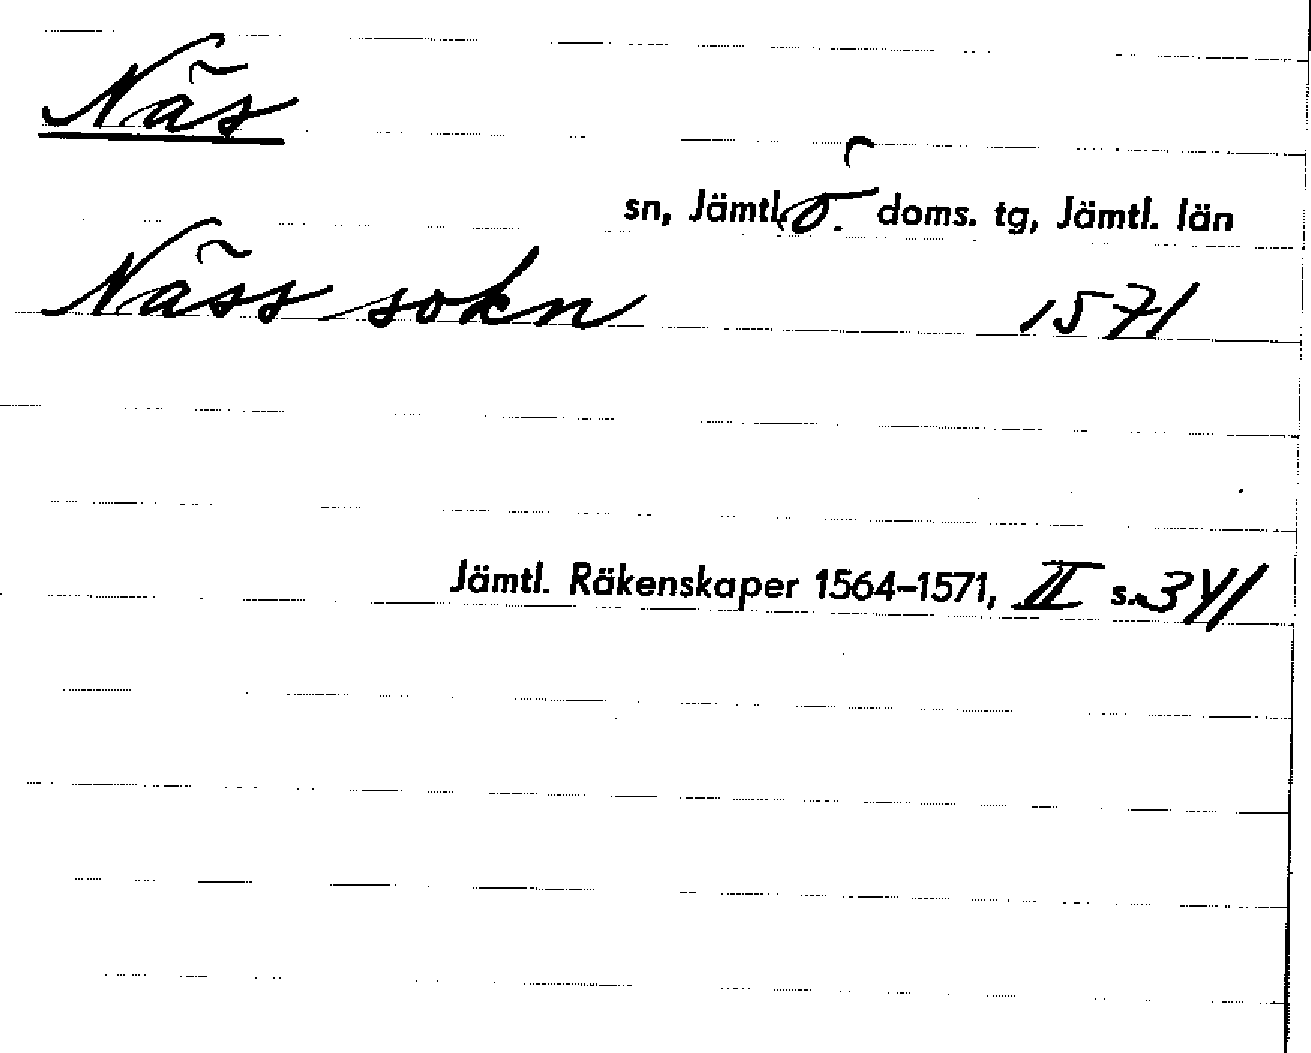 Näs
sn, Jämtl. ö. doms. tg, Jämtl. län
Näss sokn 1571
Jämtl. Räkenskaper 1564-1571, II s. 341